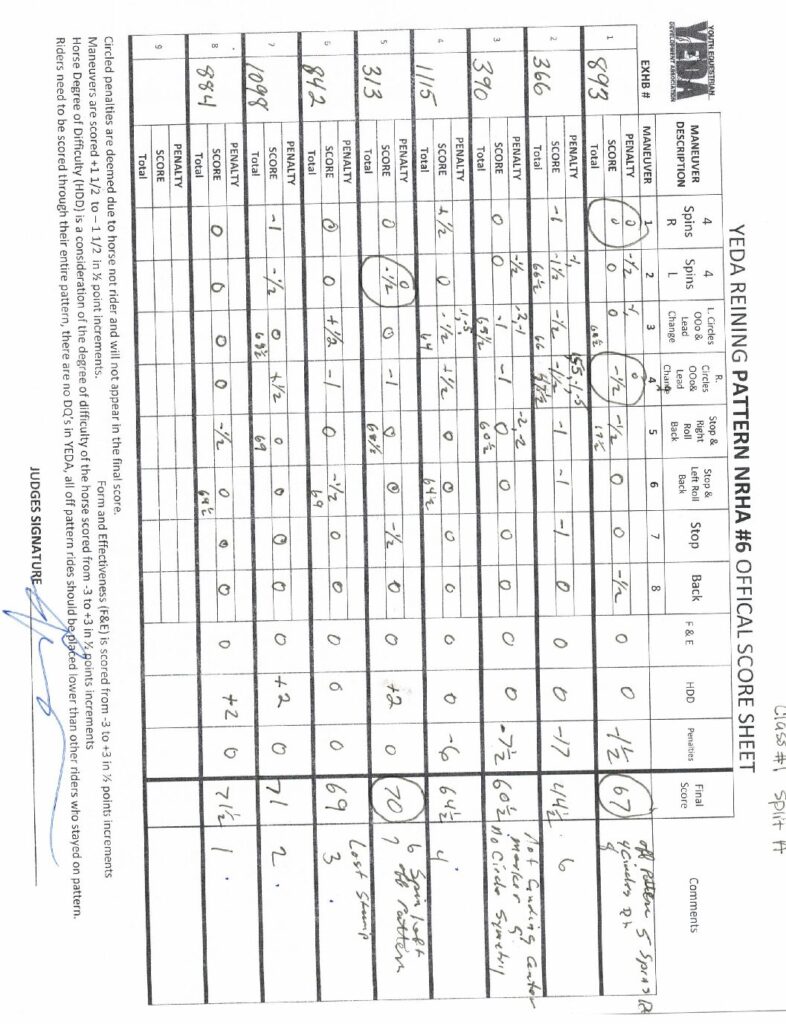 Class #1 Split A
YOUTH EQUESTRIAN
YEDA
DEVELOPMENT ASSOCIATION
YEDA REINING PATTERN NRHA #6 OFFICAL SCORE SHEET
MANEUVER DESCRIPTION 4 Spins R 4 Spins L L. Circles OOo & Lead Change R. Circles OOo& Lead Change Stop & Right Roll Back Stop & Left Roll Back Stop Back F & E HDD Penalties Final Score Comments
EXHB # MANEUVER 1 2 3 4 5 6 7 8
1 893 PENALTY 0 -1/2 -1, 0 -1/2
SCORE 0 0 0 -1/2 0 0 -1/2 0 0 -1 1/2 67
Total 68 1/2
off Pattern 5 Spins Rt
4 Circles Rt
8
2 366 PENALTY -1,
SCORE -1 -1 1/2 -1/2 -1/2 -1 -1 -1 0 0 0 -17 44 1/2 6
Total 66 1/2 66
3 390 PENALTY -1/2 -2,-1 -2,-2
SCORE 0 0 -1 -1 0 0 0 0 0 0 -7 1/2 60 1/2
Total 65 1/2 60 1/2
Not Guiding Center
marker 5
No Circle Symetry
4 1115 PENALTY
SCORE +1/2 0 -1/2 +1/2 0 0 0 0 0 0 -6 64 1/2 4
Total 64 64 1/2
5 313 PENALTY 0
SCORE 0 -1/2 0 -1 0 0 -1/2 0 0 +2 0 70
Total 68 1/2
6 Spin left
off Pattern
7
6 842 PENALTY
SCORE 0 0 +1/2 -1 0 -1/2 0 0 0 0 0 69 3
Total 69
Lost Stirrup
7 1098 PENALTY
SCORE -1 -1/2 0 +1/2 0 0 0 0 0 +2 0 71 2
Total 68 1/2 69
8 884 PENALTY
SCORE 0 0 0 0 -1/2 0 0 0 0 +2 0 71 1/2 1
Total 69 1/2
9 PENALTY
SCORE
Total
Circled penalties are deemed due to horse not rider and will not appear in the final score.
Maneuvers are scored +1 1/2 to – 1 1/2 in ½ point increments. Form and Effectiveness (F&E) is scored from -3 to +3 in ½ points increments
Horse Degree of Difficulty (HDD) is a consideration of the degree of difficulty of the horse scored from -3 to +3 in ½ points increments
Riders need to be scored through their entire pattern, there are no DQ's in YEDA, all off pattern rides should be placed lower than other riders who stayed on pattern.
JUDGES SIGNATURE